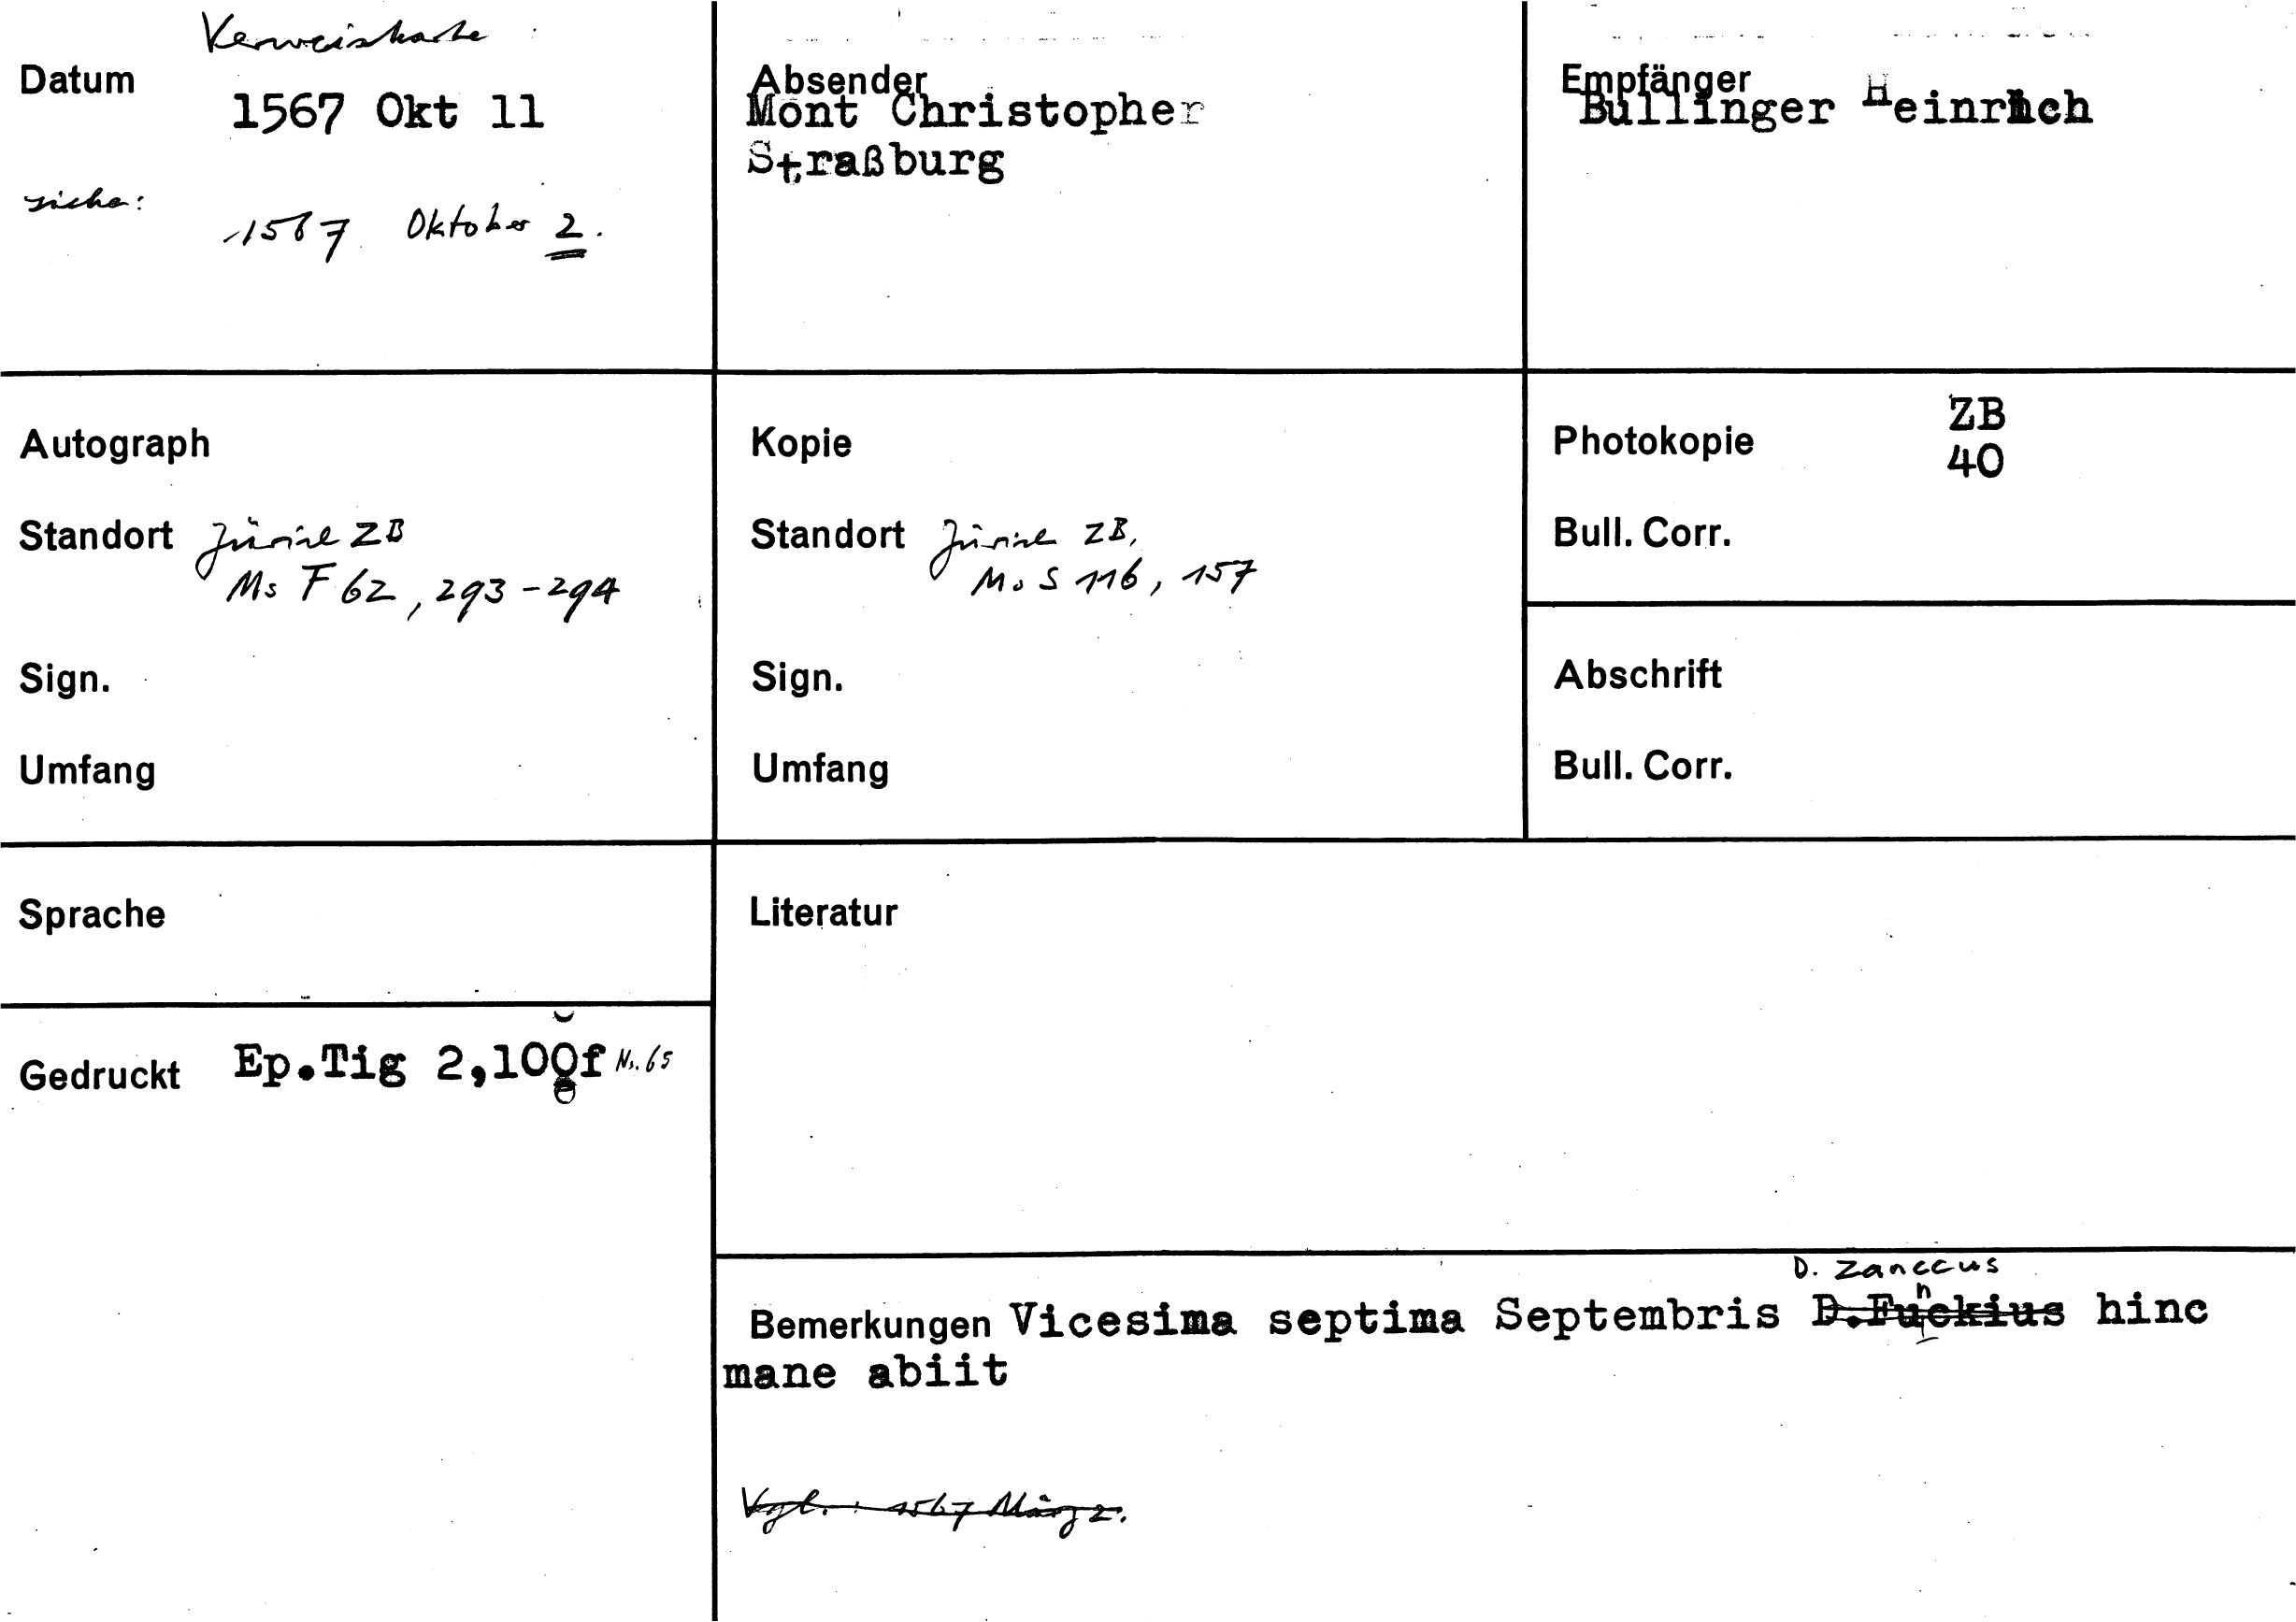 Verweiskarte
Datum
1567 Okt 11
siehe:
1567 Oktober 2.
Absender
Mont Christopher
Straßburg
Empfänger
Bullinger Heinrich
Autograph
Standort Zürich ZB
Ms F 62, 293-294
Sign.
Umfang
Kopie
Standort Zürich ZB,
Ms S 116, 157
Sign.
Umfang
Photokopie ZB
40
Bull. Corr.
Abschrift
Bull. Corr.
Sprache
Gedruckt Ep.Tig 2,100f Nr. 65
Literatur
D. Zanccus
Bemerkungen Vicesima septima Septembris D.Funckius hinc
mane abiit
Vgl.: 1567 März 2.